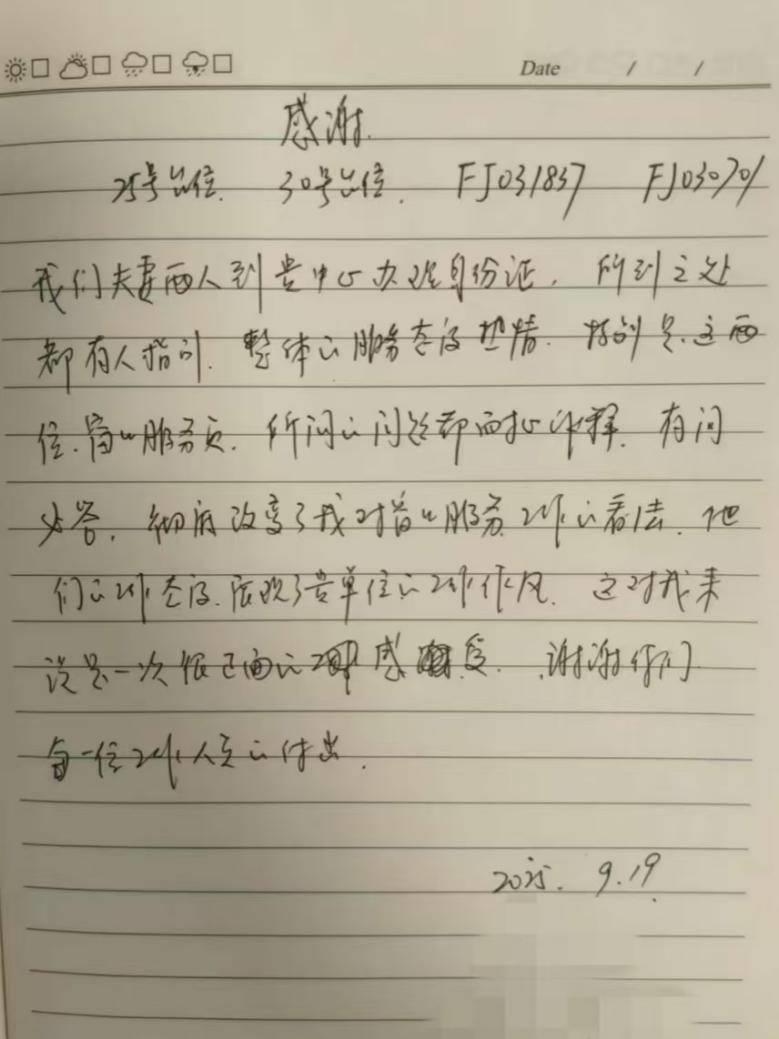 Date / /
感谢.
25号台位. 30号台位. FJ031837 FJ030701
我们夫妻两人到贵中心办理身份证, 所到之处
都有人指引. 整体的服务态度热情. 特别是.这两
位.窗口服务员. 所问的问题都耐心解释. 有问
必答, 彻底改变了我对窗口服务工作的看法. 他
们的工作态度.展现了贵单位的工作作风. 这对我来
说是一次很正面的 感 受. 谢谢你们
每一位工作人员的付出.
2025. 9.19.